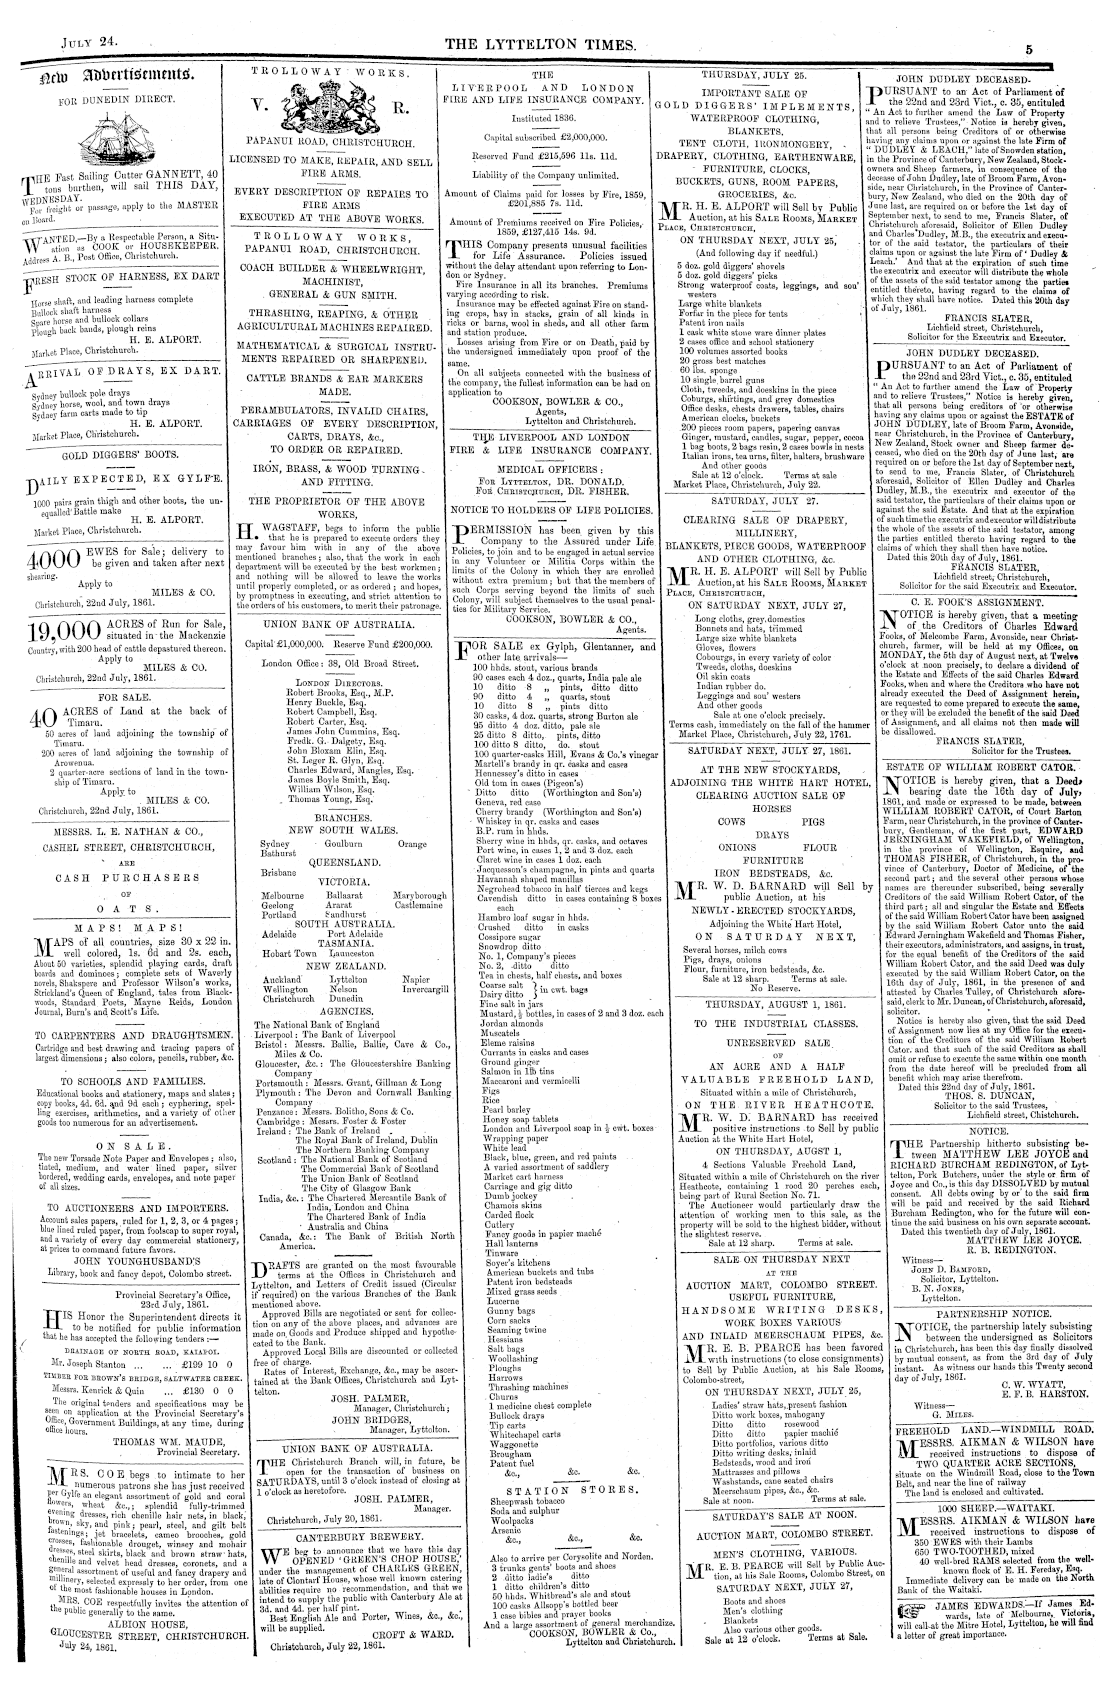 JULY 24.
THE LYTTELTON TIMES.
5
New Advertisements.
FOR DUNEDIN DIRECT.
THE Fast Sailing Cutter GANNETT, 40
tons burthen, will sail THIS DAY,
WEDNESDAY.
For freight or passage, apply to the MASTER
on Board.
WANTED,—By a Respectable Person, a Situ-
ation as COOK or HOUSEKEEPER.
Address A. B., Post Office, Christchurch.
FRESH STOCK OF HARNESS, EX DART
Horse shaft, and leading harness complete
Bullock shaft harness
Spare horse and bullock collars
Plough back bands, plough reins
H. E. ALPORT.
Market Place, Christchurch.
ARRIVAL OF DRAYS, EX DART.
Sydney bullock pole drays
Sydney horse, wool, and town drays
Sydney farm carts made to tip
H. E. ALPORT.
Market Place, Christchurch.
GOLD DIGGERS' BOOTS.
DAILY EXPECTED, EX GYLFE.
1000 pairs grain thigh and other boots, the un-
equalled Battle make
H. E. ALPORT.
Market Place, Christchurch.
4000 EWES for Sale; delivery to
be given and taken after next
shearing.
Apply to
MILES & CO.
Christchurch, 22nd July, 1861.
19,000 ACRES of Run for Sale,
situated in the Mackenzie
Country, with 200 head of cattle depastured thereon.
Apply to
MILES & CO.
Christchurch, 22nd July, 1861.
FOR SALE.
40 ACRES of Land at the back of
Timaru.
50 acres of land adjoining the township of
Timaru.
200 acres of land adjoining the township of
Arowenua.
2 quarter-acre sections of land in the town-
ship of Timaru.
Apply to
MILES & CO.
Christchurch, 22nd July, 1861.
MESSRS. L. E. NATHAN & CO.,
CASHEL STREET, CHRISTCHURCH,
ARE
CASH PURCHASERS
OF
OATS.
MAPS! MAPS!
MAPS of all countries, size 30 x 22 in.
well colored, 1s. 6d and 2s. each,
About 50 varieties, splendid playing cards, draft
boards and dominoes; complete sets of Waverly
novels, Shakspere and Professor Wilson's works,
Strickland's Queen of England, tales from Black-
woods, Standard Poets, Mayne Reids, London
Journal, Burn's and Scott's Life.
TO CARPENTERS AND DRAUGHTSMEN.
Cartridge and best drawing and tracing papers of
largest dimensions; also colors, pencils, rubber, &c.
TO SCHOOLS AND FAMILIES.
Educational books and stationery, maps and slates;
copy books, 4d, 6d. and 9d each; cyphering, spel-
ling exercises, arithmetics, and a variety of other
goods too numerous for an advertisement.
ON SALE.
The new Torsade Note Paper and Envelopes; also,
tinted, medium, and water lined paper, silver
bordered, wedding cards, envelopes, and note paper
of all sizes.
TO AUCTIONEERS AND IMPORTERS.
Account sales papers, ruled for 1, 2, 3, or 4 pages;
blue lined ruled paper, from foolscap to super royal,
and a variety of every day commercial stationery,
at prices to command future favors.
JOHN YOUNGHUSBAND'S
Library, book and fancy depot, Colombo street.
Provincial Secretary's Office,
23rd July, 1861.
HIS Honor the Superintendent directs it
to be notified for public information
that he has accepted the following tenders:—
DRAINAGE OF NORTH ROAD, KAIAPOI.
Mr. Joseph Stanton ... ... £199 10 0
TIMBER FOR BROWN'S BRIDGE, SALTWATER CREEK.
Messrs. Kenrick & Quin ... £130 0 0
The original tenders and specifications may be
seen on application at the Provincial Secretary's
Office, Government Buildings, at any time, during
office hours.
THOMAS WM. MAUDE,
Provincial Secretary.
MRS. COE begs to intimate to her
numerous patrons she has just received
per Gylfe an elegant assortment of gold and coral
flowers, wheat &c.; splendid fully-trimmed
evening dresses, rich chenille hair nets, in black,
brown, sky, and pink; pearl, steel, and gilt belt
fastenings; jet bracelets, cameo brooches, gold
crosses, fashionable drouget, winsey and mohair
dresses, steel skirts, black and brown straw hats,
chenille and velvet head dresses, coronets, and a
general assortment of useful and fancy drapery and
millinery, selected expressly to her order, from one
of the most fashionable houses in London.
MRS. COE respectfully invites the attention of
the public generally to the same.
ALBION HOUSE,
GLOUCESTER STREET, CHRISTCHURCH.
July 24, 1861.
TROLLOWAY WORKS.
V. R.
PAPANUI ROAD, CHRISTCHURCH.
LICENSED TO MAKE, REPAIR, AND SELL
FIRE ARMS.
EVERY DESCRIPTION OF REPAIRS TO
FIRE ARMS
EXECUTED AT THE ABOVE WORKS.
TROLLOWAY WORKS,
PAPANUI ROAD, CHRISTCHURCH.
COACH BUILDER & WHEELWRIGHT,
MACHINIST,
GENERAL & GUN SMITH.
THRASHING, REAPING, & OTHER
AGRICULTURAL MACHINES REPAIRED.
MATHEMATICAL & SURGICAL INSTRU-
MENTS REPAIRED OR SHARPENED.
CATTLE BRANDS & EAR MARKERS
MADE.
PERAMBULATORS, INVALID CHAIRS,
CARRIAGES OF EVERY DESCRIPTION,
CARTS, DRAYS, &c.,
TO ORDER OR REPAIRED.
IRON, BRASS, & WOOD TURNING
AND FITTING.
THE PROPRIETOR OF THE ABOVE
WORKS,
H. WAGSTAFF, begs to inform the public
that he is prepared to execute orders they
may favour him with in any of the above
mentioned branches; also, that the work in each
department will be executed by the best workmen;
and nothing will be allowed to leave the works
until properly completed, or as ordered; and hopes,
by promptness in executing, and strict attention to
the orders of his customers, to merit their patronage.
UNION BANK OF AUSTRALIA.
Capital £1,000,000. Reserve Fund £200,000.
London Office: 38, Old Broad Street.
LONDON DIRECTORS.
Robert Brooks, Esq., M.P.
Henry Buckle, Esq.
Robert Campbell, Esq.
Robert Carter, Esq.
James John Cummins, Esq.
Fredk. G. Dalgety, Esq.
John Bloxam Elin, Esq.
St. Leger R. Glyn, Esq.
Charles Edward, Mangles, Esq.
James Boyle Smith, Esq.
William Wilson, Esq.
Thomas Young, Esq.
BRANCHES.
NEW SOUTH WALES.
Sydney Goulburn Orange
Bathurst
QUEENSLAND.
Brisbane
VICTORIA.
Melbourne Ballaarat Maryborough
Geelong Ararat Castlemaine
Portland Sandhurst
SOUTH AUSTRALIA.
Adelaide Port Adelaide
TASMANIA.
Hobart Town Launceston
NEW ZEALAND.
Auckland Lyttelton Napier
Wellington Nelson Invercargill
Christchurch Dunedin
AGENCIES.
The National Bank of England
Liverpool: The Bank of Liverpool
Bristol: Messrs. Ballie, Ballie, Cave & Co.,
Miles & Co.
Gloucester, &c.: The Gloucestershire Banking
Company
Portsmouth: Messrs. Grant, Gillman & Long
Plymouth: The Devon and Cornwall Banking
Company
Penzance: Messrs. Bolitho, Sons & Co.
Cambridge: Messrs. Foster & Foster
Ireland: The Bank of Ireland
The Royal Bank of Ireland, Dublin
The Northern Banking Company
Scotland: The National Bank of Scotland
The Commercial Bank of Scotland
The Union Bank of Scotland
The City of Glasgow Bank
India, &c.: The Chartered Mercantile Bank of
India, London and China
The Chartered Bank of India
Australia and China
Canada, &c.: The Bank of British North
America.
DRAFTS are granted on the most favourable
terms at the Offices in Christchurch and
Lyttelton, and Letters of Credit issued (Circular
if required) on the various Branches of the Bank
mentioned above.
Approved Bills are negotiated or sent for collec-
tion on any of the above places, and advances are
made on Goods and Produce shipped and hypothe-
cated to the Bank.
Approved Local Bills are discounted or collected
free of charge.
Rates of Interest, Exchange, &c., may be ascer-
tained at the Bank Offices, Christchurch and Lyt-
telton.
JOSH. PALMER,
Manager, Christchurch;
JOHN BRIDGES,
Manager, Lyttelton.
UNION BANK OF AUSTRALIA.
THE Christchurch Branch will, in future, be
open for the transaction of business on
SATURDAYS, until 3 o'clock instead of closing at
1 o'clock as heretofore.
JOSH. PALMER,
Manager.
Christchurch, July 20, 1861.
CANTERBURY BREWERY.
WE beg to announce that we have this day
OPENED 'GREEN'S CHOP HOUSE,'
under the management of CHARLES GREEN,
late of Clontarf House, whose well known catering
abilities require no recommendation, and that we
intend to supply the public with Canterbury Ale at
3d. and 4d. per half pint.
Best English Ale and Porter, Wines, &c., &c.,
will be supplied.
CROFT & WARD.
Christchurch, July 22, 1861.
THE
LIVERPOOL AND LONDON
FIRE AND LIFE INSURANCE COMPANY.
Instituted 1836.
Capital subscribed £2,000,000.
Reserved Fund £215,596 11s. 11d.
Liability of the Company unlimited.
Amount of Claims paid for losses by Fire, 1859,
£201,885 7s. 11d.
Amount of Premiums received on Fire Policies,
1859, £127,415 14s. 9d.
THIS Company presents unusual facilities
for Life Assurance. Policies issued
without the delay attendant upon referring to Lon-
don or Sydney.
Fire Insurance in all its branches. Premiums
varying according to risk.
Insurance may be effected against Fire on stand-
ing crops, hay in stacks, grain of all kinds in
ricks or barns, wool in sheds, and all other farm
and station produce.
Losses arising from Fire or on Death, paid by
the undersigned immediately upon proof of the
same.
On all subjects connected with the business of
the company, the fullest information can be had on
application to
COOKSON, BOWLER & CO.,
Agents,
Lyttelton and Christchurch.
THE LIVERPOOL AND LONDON
FIRE & LIFE INSURANCE COMPANY.
MEDICAL OFFICERS:
FOR LYTTELTON, DR. DONALD.
FOR CHRISTCHURCH, DR. FISHER.
NOTICE TO HOLDERS OF LIFE POLICIES.
PERMISSION has been given by this
Company to the Assured under Life
Policies, to join and to be engaged in actual service
in any Volunteer or Militia Corps within the
limits of the Colony in which they are enrolled
without extra premium; but that the members of
such Corps serving beyond the limits of such
Colony, will subject themselves to the usual penal-
ties for Military Service.
COOKSON, BOWLER & CO.,
Agents.
FOR SALE ex Gylph, Glentanner, and
other late arrivals—
100 hhds. stout, various brands
90 cases each 4 doz., quarts, India pale ale
10 ditto 8 „ pints, ditto ditto
90 ditto 4 „ quarts, stout
10 ditto 8 „ pints ditto
30 casks, 4 doz. quarts, strong Burton ale
95 ditto 4 doz. ditto, pale ale
25 ditto 8 ditto, pints, ditto
100 ditto 8 ditto, do. stout
100 quarter-casks Hill, Evans & Co.'s vinegar
Martell's brandy in qr. casks and cases
Hennessey's ditto in cases
Old tom in cases (Pigeon's)
Ditto ditto (Worthington and Son's)
Geneva, red case
Cherry brandy (Worthington and Son's)
Whiskey in qr. casks and cases
B.P. rum in hhds.
Sherry wine in hhds., qr. casks, and octaves
Port wine, in cases 1, 2 and 3 doz. each
Claret wine in cases 1 doz. each
Jacquesson's champagne, in pints and quarts
Havannah shaped manillas
Negrohead tobacco in half tierces and kegs
Cavendish ditto in cases containing 8 boxes
each
Hambro loaf sugar in hhds.
Crushed ditto in casks
Cossipore sugar
Snowdrop ditto
No. 1, Company's pieces
No. 2, ditto ditto
Tea in chests, half chests, and boxes
Coarse salt } in cwt. bags
Dairy ditto }
Fine salt in jars
Mustard, ½ bottles, in cases of 2 and 3 doz. each
Jordan almonds
Muscatels
Eleme raisins
Currants in casks and cases
Ground ginger
Salmon in 1lb tins
Maccaroni and vermicelli
Figs
Rice
Pearl barley
Honey soap tablets
London and Liverpool soap in ½ cwt. boxes
Wrapping paper
White lead
Black, blue, green, and red paints
A varied assortment of saddlery
Market cart harness
Carriage and gig ditto
Dumb jockey
Chamois skins
Carded flock
Cutlery
Fancy goods in papier maché
Hall lanterns
Tinware
Soyer's kitchens
American buckets and tubs
Patent iron bedsteads
Mixed grass seeds
Lucerne
Gunny bags
Corn sacks
Seaming twine
Hessians
Salt bags
Woollashing
Ploughs
Harrows
Thrashing machines
Churns
1 medicine chest complete
Bullock drays
Tip carts
Whitechapel carts
Waggonette
Brougham
Patent fuel
&c., &c. &c.
STATION STORES.
Sheepwash tobacco
Soda and sulphur
Woolpacks
Arsenic
&c., &c., &c.
Also to arrive per Corysolite and Norden.
3 trunks gents' boots and shoes
2 ditto ladie's ditto
1 ditto children's ditto
50 hhds. Whitbread's ale and stout
100 casks Allsopp's bottled beer
1 case bibles and prayer books
And a large assortment of general merchandize.
COOKSON, BOWLER & Co.,
Lyttelton and Christchurch.
THURSDAY, JULY 25.
IMPORTANT SALE OF
GOLD DIGGERS' IMPLEMENTS,
WATERPROOF CLOTHING,
BLANKETS,
TENT CLOTH, IRONMONGERY,
DRAPERY, CLOTHING, EARTHENWARE,
FURNITURE, CLOCKS,
BUCKETS, GUNS, ROOM PAPERS,
GROCERIES, &c.
MR. H. E. ALPORT will Sell by Public
Auction, at his SALE ROOMS, MARKET
PLACE, CHRISTCHURCH,
ON THURSDAY NEXT, JULY 25,
(And following day if needful.)
5 doz. gold diggers' shovels
5 doz. gold diggers' picks
Strong waterproof coats, leggings, and sou'
westers
Large white blankets
Forfar in the piece for tents
Patent iron nails
1 cask white stone ware dinner plates
2 cases office and school stationery
100 volumes assorted books
20 gross best matches
60 lbs. sponge
10 single barrel guns
Cloth, tweeds, and doeskins in the piece
Coburgs, shirtings, and grey domestics
Office desks, chests drawers, tables, chairs
American clocks, buckets
200 pieces room papers, papering canvas
Ginger, mustard, candles, sugar, pepper, cocoa
1 bag boots, 2 bags resin, 2 cases bowls in nests
Italian irons, tea urns, filter, halters, brushware
And other goods
Sale at 12 o'clock. Terms at sale
Market Place, Christchurch, July 22.
SATURDAY, JULY 27.
CLEARING SALE OF DRAPERY,
MILLINERY,
BLANKETS, PIECE GOODS, WATERPROOF
AND OTHER CLOTHING, &c.
MR. H. E. ALPORT will Sell by Public
Auction, at his SALE ROOMS, MARKET
PLACE, CHRISTCHURCH,
ON SATURDAY NEXT, JULY 27,
Long cloths, grey domestics
Bonnets and hats, trimmed
Large size white blankets
Gloves, flowers
Cobourgs, in every variety of color
Tweeds, cloths, doeskins
Oil skin coats
Indian rubber do.
Leggings and sou' westers
And other goods
Sale at one o'clock precisely.
Terms cash, immediately on the fall of the hammer
Market Place, Christchurch, July 22, 1761.
SATURDAY NEXT, JULY 27, 1861.
AT THE NEW STOCKYARDS,
ADJOINING THE WHITE HART HOTEL,
CLEARING AUCTION SALE OF
HORSES
COWS PIGS
DRAYS
ONIONS FLOUR
FURNITURE
IRON BEDSTEADS, &c.
MR. W. D. BARNARD will Sell by
public Auction, at his
NEWLY-ERECTED STOCKYARDS,
Adjoining the White Hart Hotel,
ON SATURDAY NEXT,
Several horses, milch cows
Pigs, drays, onions
Flour, furniture, iron bedsteads, &c.
Sale at 12 sharp. Terms at sale.
No Reserve.
THURSDAY, AUGUST 1, 1861.
TO THE INDUSTRIAL CLASSES.
UNRESERVED SALE
OF
AN ACRE AND A HALF
VALUABLE FREEHOLD LAND,
Situated within a mile of Christchurch,
ON THE RIVER HEATHCOTE.
MR. W. D. BARNARD has received
positive instructions to Sell by public
Auction at the White Hart Hotel,
ON THURSDAY, AUGST 1,
4 Sections Valuable Freehold Land,
Situated within a mile of Christchurch on the river
Heathcote, containing 1 rood 20 perches each,
being part of Rural Section No. 71.
The Auctioneer would particularly draw the
attention of working men to this sale, as the
property will be sold to the highest bidder, without
the slightest reserve.
Sale at 12 sharp. Terms at sale.
SALE ON THURSDAY NEXT
AT THE
AUCTION MART, COLOMBO STREET.
USEFUL FURNITURE,
HANDSOME WRITING DESKS,
WORK BOXES VARIOUS
AND INLAID MEERSCHAUM PIPES, &c.
MR. E. B. PEARCE has been favored
with instructions (to close consignments)
to Sell by Public Auction, at his Sale Rooms,
Colombo-street,
ON THURSDAY NEXT, JULY 25,
Ladies' straw hats, present fashion
Ditto work boxes, mahogany
Ditto ditto rosewood
Ditto ditto papier maché
Ditto portfolios, various ditto
Ditto writing desks, inlaid
Bedsteads, wood and iron
Mattrasses and pillows
Washstands, cane seated chairs
Meerschaum pipes, &c., &c.
Sale at noon. Terms at sale.
SATURDAY'S SALE AT NOON.
AUCTION MART, COLOMBO STREET.
MEN'S CLOTHING, VARIOUS.
MR. E. B. PEARCE will Sell by Public Auc-
tion, at his Sale Rooms, Colombo Street, on
SATURDAY NEXT, JULY 27,
Boots and shoes
Men's clothing
Blankets
Also various other goods.
Sale at 12 o'clock. Terms at Sale.
JOHN DUDLEY DECEASED.
PURSUANT to an Act of Parliament of
the 22nd and 23rd Vict., c. 35, entituled
"An Act to further amend the Law of Property
and to relieve Trustees," Notice is hereby given,
that all persons being Creditors of or otherwise
having any claims upon or against the late Firm of
"DUDLEY & LEACH," late of Snowden station,
in the Province of Canterbury, New Zealand, Stock-
owners and Sheep farmers, in consequence of the
decease of John Dudley, late of Broom Farm, Avon-
side, near Christchurch, in the Province of Canter-
bury, New Zealand, who died on the 20th day of
June last, are required on or before the 1st day of
September next, to send to me, Francis Slater, of
Christchurch aforesaid, Solicitor of Ellen Dudley
and Charles Dudley, M.B., the executrix and execu-
tor of the said testator, the particulars of their
claims upon or against the late Firm of 'Dudley &
Leach.' And that at the expiration of such time
the executrix and executor will distribute the whole
of the assets of the said testator among the parties
entitled thereto, having regard to the claims of
which they shall have notice. Dated this 20th day
of July, 1861.
FRANCIS SLATER,
Lichfield street, Christchurch,
Solicitor for the Executrix and Executor.
JOHN DUDLEY DECEASED.
PURSUANT to an Act of Parliament of
the 22nd and 23rd Vict., c. 35, entituled
"An Act to further amend the Law of Property
and to relieve Trustees," Notice is hereby given,
that all persons being creditors of or otherwise
having any claims upon or against the ESTATE of
JOHN DUDLEY, late of Broom Farm, Avonside,
near Christchurch, in the Province of Canterbury,
New Zealand, Stock owner and Sheep farmer de-
ceased, who died on the 20th day of June last, are
required on or before the 1st day of September next,
to send to me, Francis Slater, of Christchurch
aforesaid, Solicitor of Ellen Dudley and Charles
Dudley, M.B., the executrix and executor of the
said testator, the particulars of their claims upon or
against the said Estate. And that at the expiration
of such time the executrix and executor will distribute
the whole of the assets of the said testator, among
the parties entitled thereto having regard to the
claims of which they shall then have notice.
Dated this 20th day of July, 1861.
FRANCIS SLATER,
Lichfield street, Christchurch,
Solicitor for the said Executrix and Executor.
C. E. FOOK'S ASSIGNMENT.
NOTICE is hereby given, that a meeting
of the Creditors of Charles Edward
Fooks, of Melcombe Farm, Avonside, near Christ-
church, farmer, will be held at my Offices, on
MONDAY, the 5th day of August next, at Twelve
o'clock at noon precisely, to declare a dividend of
the Estate and Effects of the said Charles Edward
Fooks, when and where the Creditors who have not
already executed the Deed of Assignment herein,
are requested to come prepared to execute the same,
or they will be excluded the benefit of the said Deed
of Assignment, and all claims not then made will
be disallowed.
FRANCIS SLATER,
Solicitor for the Trustees.
ESTATE OF WILLIAM ROBERT CATOR.
NOTICE is hereby given, that a Deed,
bearing date the 16th day of July,
1861, and made or expressed to be made, between
WILLIAM ROBERT CATOR, of Court Barton
Farm, near Christchurch, in the province of Canter-
bury, Gentleman, of the first part, EDWARD
JERNINGHAM WAKEFIELD, of Wellington,
in the province of Wellington, Esquire, and
THOMAS FISHER, of Christchurch, in the pro-
vince of Canterbury, Doctor of Medicine, of the
second part; and the several other persons whose
names are thereunder subscribed, being severally
Creditors of the said William Robert Cator, of the
third part; all and singular the Estate and Effects
of the said William Robert Cator have been assigned
by the said William Robert Cator unto the said
Edward Jerningham Wakefield and Thomas Fisher,
their executors, administrators, and assigns, in trust,
for the equal benefit of the Creditors of the said
William Robert Cator, and the said Deed was duly
executed by the said William Robert Cator, on the
16th day of July, 1861, in the presence of and
attested by Charles Tulley, of Christchurch afore-
said, clerk to Mr. Duncan, of Christchurch, aforesaid,
solicitor.
Notice is hereby also given, that the said Deed
of Assignment now lies at my Office for the execu-
tion of the Creditors of the said William Robert
Cator. and that such of the said Creditors as shall
omit or refuse to execute the same within one month
from the date hereof will be precluded from all
benefit which may arise therefrom.
Dated this 22nd day of July, 1861.
THOS. S. DUNCAN,
Solicitor to the said Trustees,
Lichfield street, Chistchurch.
NOTICE.
THE Partnership hitherto subsisting be-
tween MATTHEW LEE JOYCE and
RICHARD BURCHAM REDINGTON, of Lyt-
telton, Pork Butchers, under the style or firm of
Joyce and Co., is this day DISSOLVED by mutual
consent. All debts owing by or to the said firm
will be paid and received by the said Richard
Burcham Redington, who for the future will con-
tinue the said business on his own separate account.
Dated this twentieth day of July, 1861.
MATTHEW LEE JOYCE.
R. B. REDINGTON.
Witness—
JOHN D. BAMFORD,
Solicitor, Lyttelton.
B. N. JONES,
Lyttelton.
PARTNERSHIP NOTICE.
NOTICE, the partnership lately subsisting
between the undersigned as Solicitors
in Christchurch, has been this day finally dissolved
by mutual consent, as from the 3rd day of July
instant. As witness our hands this Twenty second
day of July, 1861.
C. W. WYATT,
E. F. B. HARSTON.
Witness—
G. MILES.
FREEHOLD LAND.—WINDMILL ROAD.
MESSRS. AIKMAN & WILSON have
received instructions to dispose of
TWO QUARTER ACRE SECTIONS,
situate on the Windmill Road, close to the Town
Belt, and near the line of railway
The land is enclosed and cultivated.
1000 SHEEP.—WAITAKI.
MESSRS. AIKMAN & WILSON have
received instructions to dispose of
350 EWES with their Lambs
650 TWO-TOOTHED, mixed
40 well-bred RAMS selected from the well-
known flock of E. H. Fereday, Esq.
Immediate delivery can be made on the North
Bank of the Waitaki.
JAMES EDWARDS.—If James Ed-
wards, late of Melbourne, Victoria,
will call at the Mitre Hotel, Lyttelton, he will find
a letter of great importance.